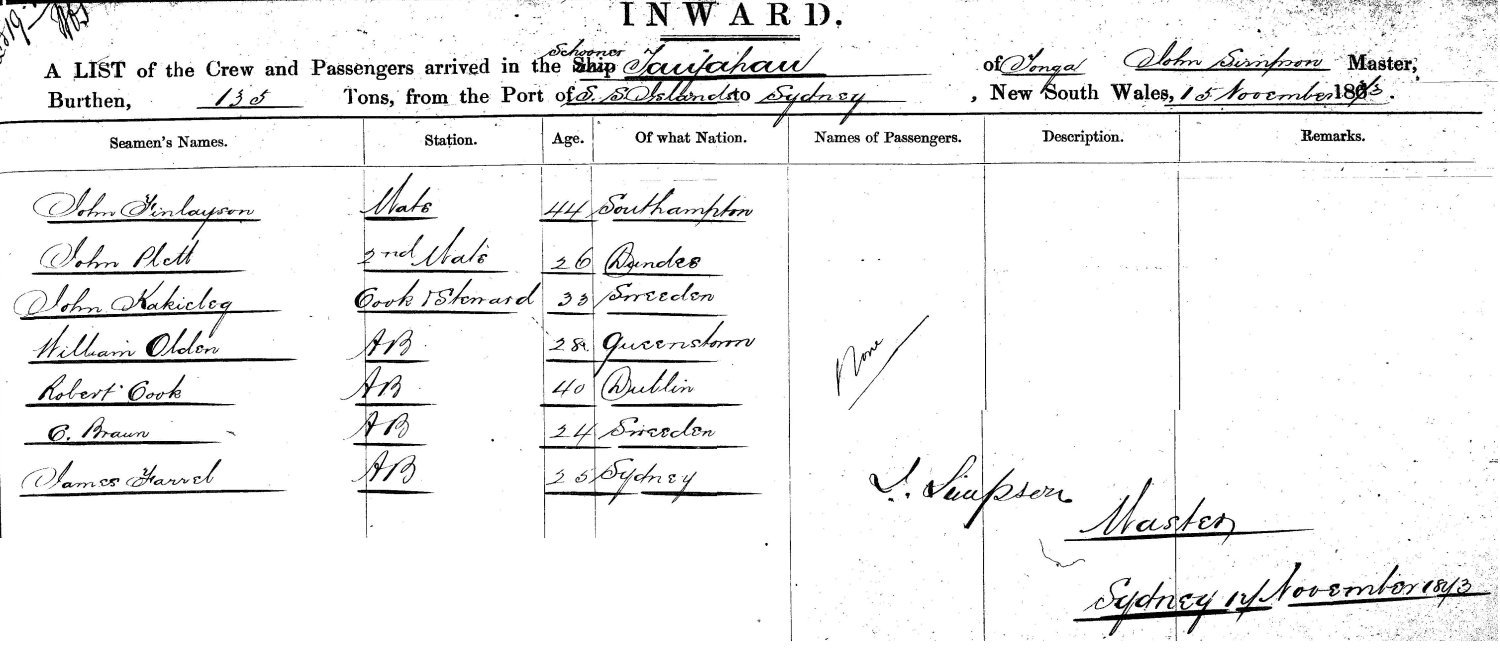 INWARD.
Schooner
A LIST of the Crew and Passengers arrived in the Ship Taufahau of Tonga John Simpson Master,
Burthen, 135 Tons, from the Port of S. S Islands to Sydney, New South Wales, 15 November 1873.
Seamen's Names. Station. Age. Of what Nation. Names of Passengers. Description. Remarks.
John Finlayson Mate 44 Southampton
John Plett 2nd Mate 26 Dundee
John Cook & Steward 33 Sweeden
William Olden AB 28 Queenstown
None
Robert Cook AB 40 Dublin
C. Braun AB 24 Sweeden
James Farrel AB 25 Sydney
J. Simpson
Master
Sydney November 1873